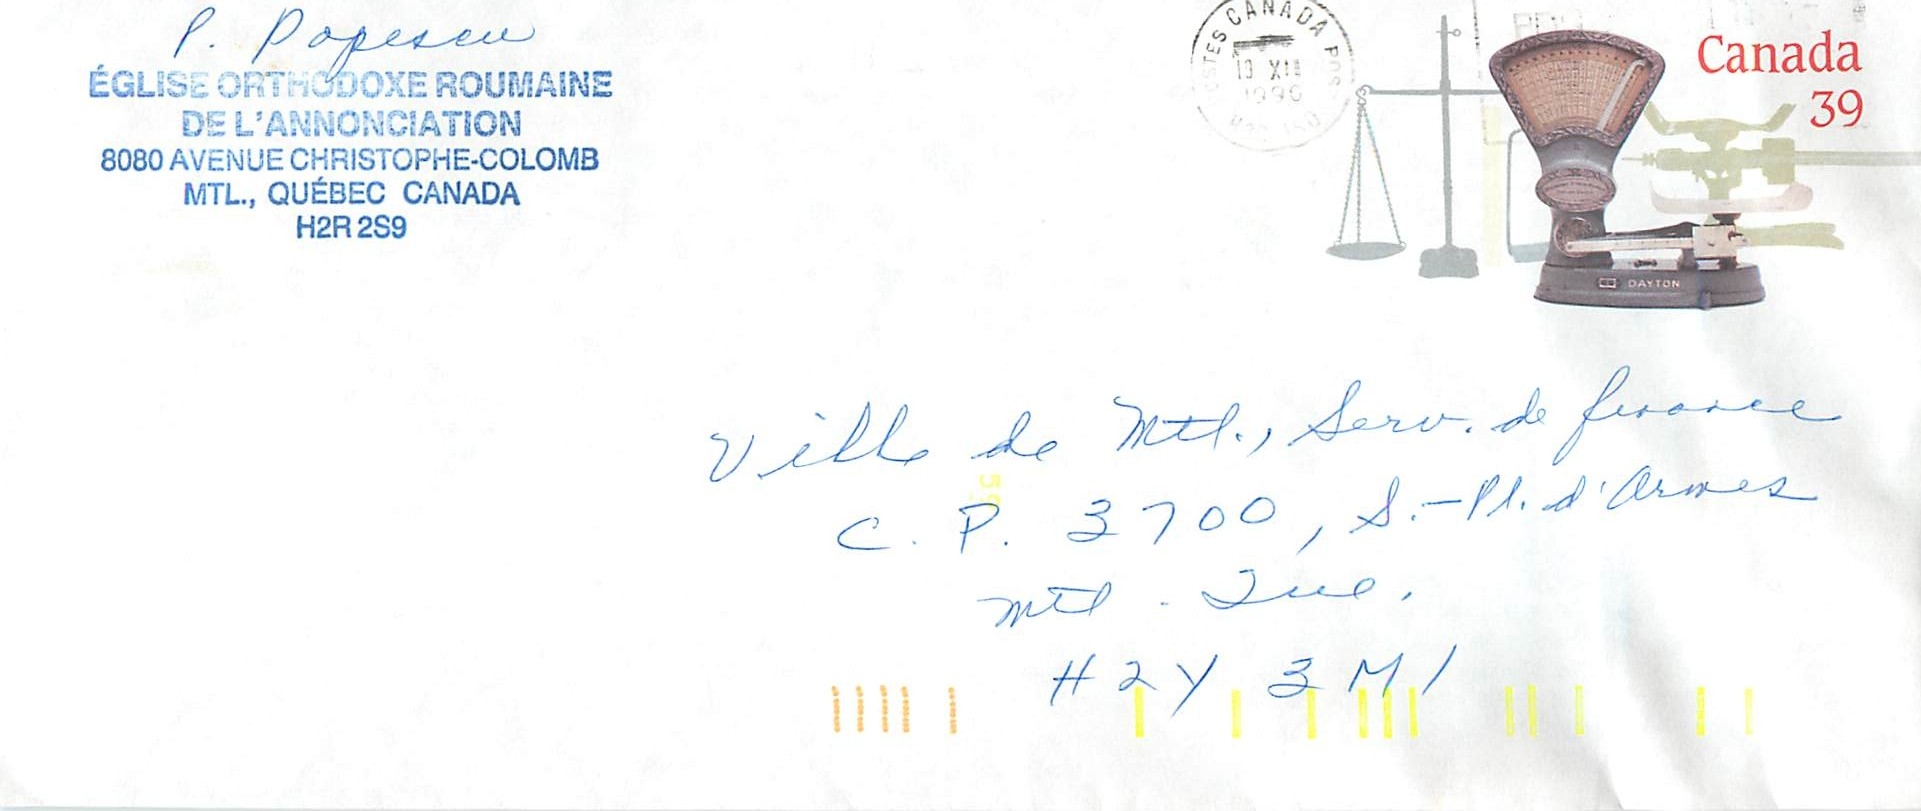 P. Popescu
ÉGLISE ORTHODOXE ROUMAINE
DE L'ANNONCIATION
8080 AVENUE CHRISTOPHE-COLOMB
MTL., QUÉBEC CANADA
H2R 2S9
POSTES CANADA POST
13 XII
1990
Canada
39
DAYTON
Ville de Mtl., Serv. de finance
C. P. 3700, S.-Pl. d'Armes
Mtl. Que.
H2Y 3M1